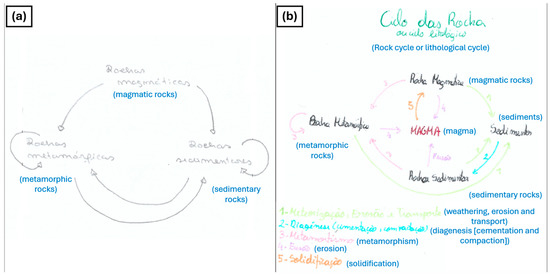 (a)
Rochas
magmáticas
(magmatic rocks)
Rochas
metamórficas
(metamorphic
rocks)
Rochas
sedimentares
(sedimentary
rocks)
(b)
Ciclo das Rocha
ou ciclo litológico
(Rock cycle or lithological cycle)
Rocha Magmática
(magmatic rocks)
5
4
1
3
(sediments)
Rocha Metamórfica
MAGMA
(magma)
Sedimentos
(metamorphic
rocks)
Fusão
2
Rochas Sedimentar
(sedimentary rocks)
1- Meteorização, Erosão e Transporte
(weathering, erosion and
transport)
2- Diagénese (cimentação, compactação)
(diagenesis [cementation and
compaction])
3- Metamorfismo
(metamorphism)
4- Fusão
(erosion)
5- Solidificação
(solidification)